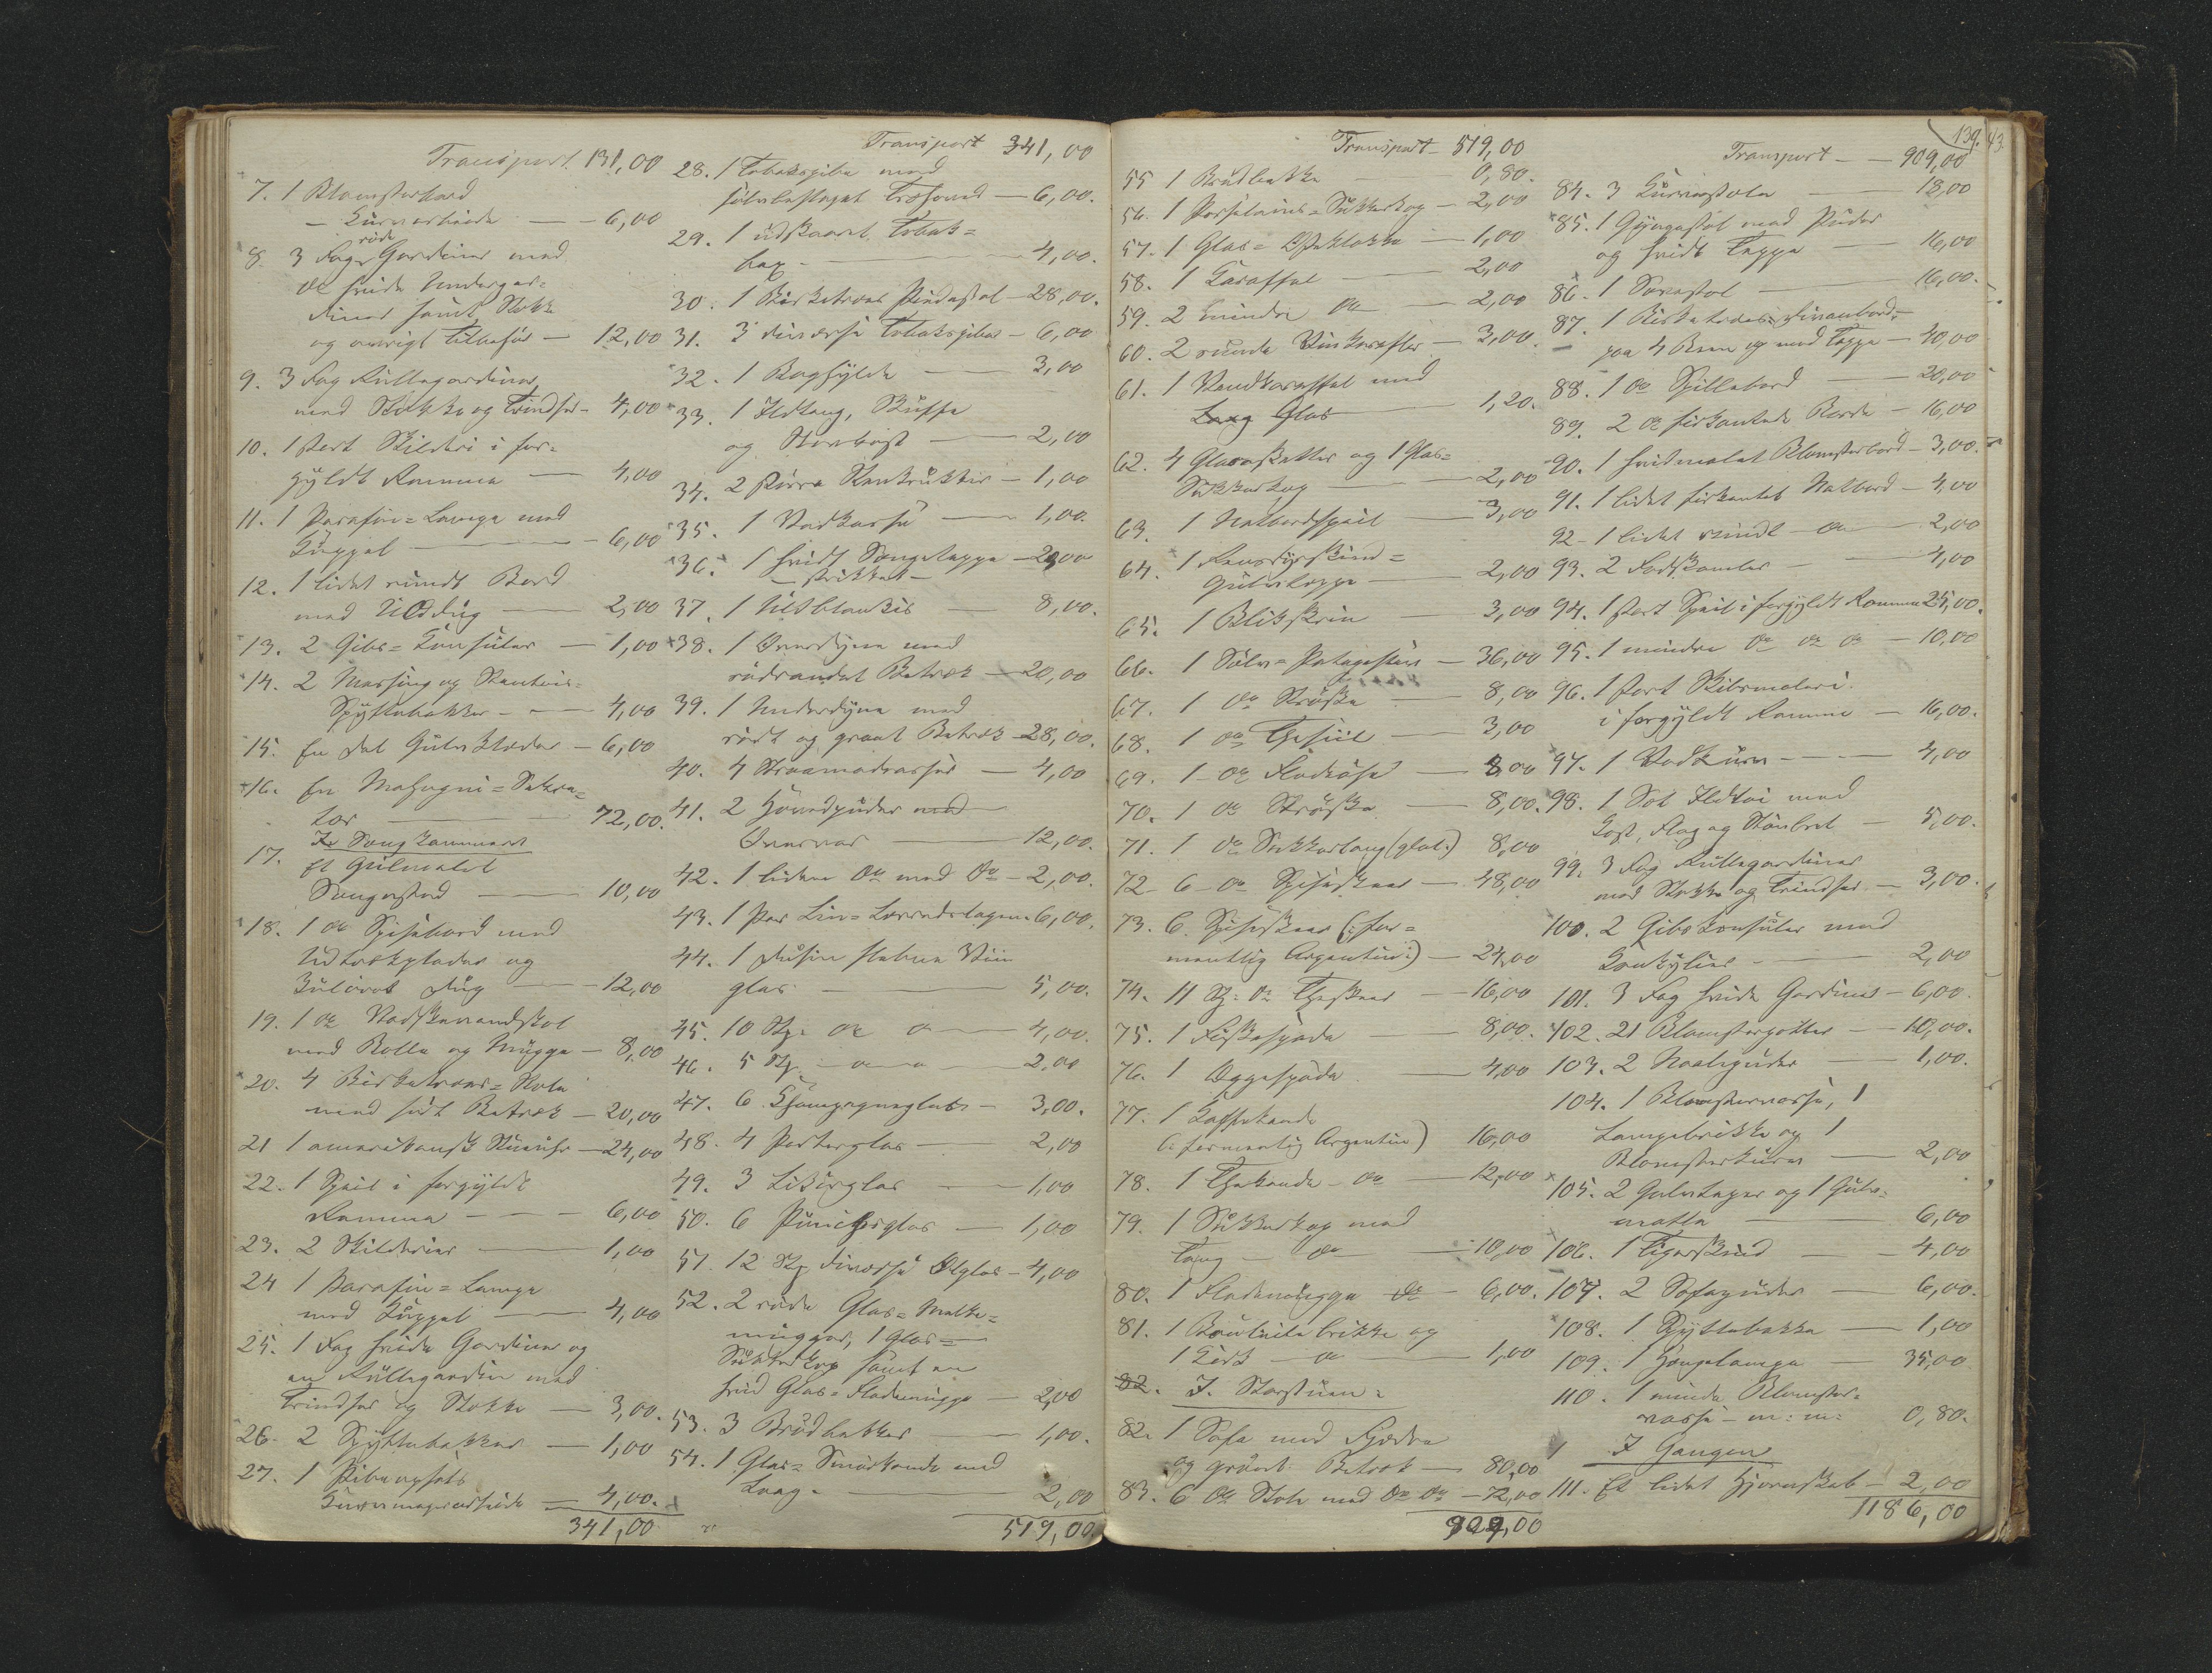 Transport 131,00
7. 1 Blomsterbord
– Kurvarbeide – 6,00
røde
8. 3 Fag Gardiner med
do hvide Undergar=
diner samt Stokke
og øvrigt Tilbehør – 12,00
9. 3 Fag Rullegardiner
med Stokke og Trindser – 4,00
10. 1 stort Skilderi i for=
gyldt Ramme – 4,00
11. 1 Parafin=Lampe med
Kuppel – 6,00
12. 1 lidet rundt Bord
med Ulddug – 2,00
13. 2 Gibs=Konsuler – 1,00
14. 2 Messing og Stentøis=
Spyttebakker – 4,00
15. En Del Gulvklæder – 6,00
16. En Mahogni=Sekre=
tær – 72,00
I Sengkammeret
17. Et gulmalet
Sengested – 10,00
18. 1 do Spisebord med
Udtræksplader og
Dug – 12,00
19. 1 do Vadskevandsbol
med Bolle og Mugge – 8,00
20. 4 Birketræes=Stole
med sort Betræk – 20,00
21 1 amerikansk Stueuhr – 24,00
22. 1 Speil i forgyldt
Ramme – 6,00
23. 2 Skilderier – 1,00
24 1 Parafin=Lampe
med Kuppel – 4,00
25. 1 Fag hvide Gardiner og
en Rullegardin med
Trindser og Stokke – 3,00.
26. 2 Spyttebakker – 1,00
27. 1 Pibeopsats
Kurvmagerarbeide – 4,00.
341,00
Transport 341,00
28. 1 Tobakspibe med
sølvbeslaget Træhoved – 6,00.
29. 1 udskaaret Tobak=
– 4,00.
30. 1 Birketræes Pindestol – 28,00.
31. 3 diverse Tobakspiber – 6,00
32. 1 Boghylde – 3,00
33. 1 Ildtang, Skuffe
og Støvkost – 2,00
34. 2 større Stenkrukker – 1,00
35. 1 Vadkasse – 1,00.
36. 1 hvidt Sengeteppe – 20,00
– strikket –
37. 1 Uldblankis – 8,00.
38. 1 Overdyne med
rødrandet Betræk – 20,00
39. 1 Underdyne med
rødt og graat Betræk – 28,00.
40. 4 Straamadrasser – 4,00
41. 2 Hovedpuder med
Overvar – 12,00.
42. 1 liden do med do – 2,00.
43. 1 Par Lin=Lærredslagen 6,00.
44. 1 Dusin slebne Viin
glas – 5,00.
45. 10 Stk. do do – 4,00.
46. 5 Stk. – do – 2,00
47. 6 Champagneglas – 3,00.
48. 4 Porterglas – 2,00
49. 3 Likørglas – 1,00
50. 6 Punchglas – 1,00
51. 12 Stk diverse Ølglas – 4,00
52. 2 røde Glas=Melke=
mugger, 1 Glas=
Sukkerkop samt en
hvid Glas=Flødemugge – 2,00
53. 3 Brødbakker – 1,00.
54. 1 Glas=Smørkande med
Laag. – 2,00
519,00.
Transport – 519,00
55 1 Brødbakke – 0,80.
56. 1 Porselains=Sukkerkop – 2,00
57. 1 Glas=Osteklokke – 1,00
58. 1 Karaffel – 2,00
59. 2 mindre do – 2,00
60. 2 runde Vinkarafler – 3,00.
61. 1 Vandkaraffel med
Glas – 1,20.
62. 4 Glasasketter og 1 Glas=
Sukkerkop – 2,00
63. 1 Natbordspeil – 3,00
64. 1 Rensdyrskind=
Gulvteppe – 2,00
65. 1 Blikskrin – 3,00
66. 1 Sølv=Potageskee – 36,00
67. 1 do Strøske – 8,00
68. 1 do Thesiil – 3,00
69. 1 do Flødeøse – 8,00
70. 1 do Strøske – 8,00.
71. 1 do Sukkertang (glat.) 8,00
72 – 6 – do Spiseskeer – 48,00
73. 6. Spiseskeer (: for=
mentlig Argentin:) – 24,00
74. 11 St: do Theskeer – 16,00
75. 1 Fiskespade – 8,00.
76. 1 Æggespade – 4,00
77. 1 Kaffekande
(: formentlig Argentin) 16,00
78. 1 Thekande – do – 12,00
79. 1 Sukkerkop med
Tang – do – 10,00
80. 1 Flødemugge do – 6,00.
81. 1 brikke og
1 – do – 1,00
82. I. Storstuen.
82. 1 Sofa med Fjædre
og grønt Betræk – 80,00
83. 6 do Stole med do do – 72,00
909,00
139. 43.
Transport – – 909,00
84. 3 Kurvestole – 18,00
85. 1 Gyngestol med Puder
og hvidt Teppe – 16,00
86. 1 Sovestol – 16,00.
87. 1 Birketræes=Divanbord=
paa 4 Ben og med Teppe – 40,00
88. 1 do Spillebord – 20,00
89. 2 do firkantede Borde – 16,00
90. 1 hvidmalet Blomsterbord – 3,00.
91. 1 lidet firkantet Natbord – 4,00
92 – 1 lidet rundt – do – 2,00
93. 2 Fodskamler – 4,00
94. 1 stort Speil i forgyldt Ramme 25,00.
95. 1 mindre do do do – 10,00
96. 1 stort Skibsmaleri
i forgyldt Ramme – 16,00.
97. 1 Vedkurv – 4,00
98. 1 Set Ildtøi med
Kost, Flag og Støvbret – 5,00.
99. 3 Fag Rullegardiner
med Stokke og Trindser – 3,00.
100. 2 Gibskonsuler med
Konkylier – 2,00
101. 3 Fag hvide Gardiner – 6,00.
102. 21 Blomsterpotter – 10,00.
103. 2 Naalepuder – 1,00.
104. 1 Blomstervase, 1
Lampebrikke og 1
Blomsterkurv – 2,00
105. 2 Gulvtæper og 1 Gulv=
matte – 6,00
106. 1 Tigerskind – 4,00
107. 2 Sofapuder – 6,00.
108. 1 Spyttebakke – 1,00
109. 1 Hængelampe – 35,00
110. 1 mindre Blomster=
vase – m: m: 0,80.
I Gangen
111. Et lidet Hjørneskab – 2,00
1186,00